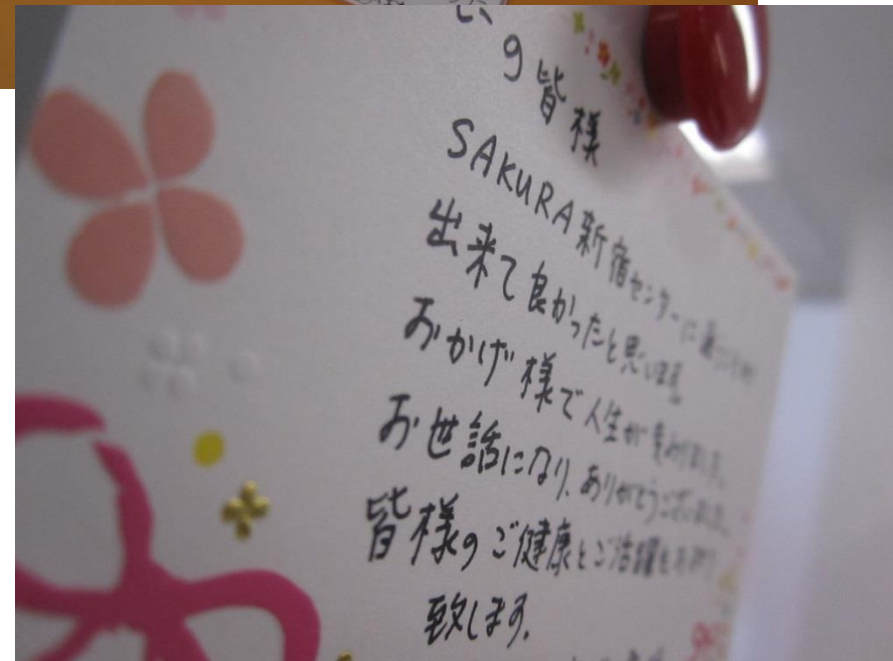 の皆様
SAKURA新宿センターに通うことが
出来て良かったと思います。
おかげ様で人生が変わりました。
お世話になり、ありがとうございました。
皆様のご健康とご活躍をお祈り
致します。